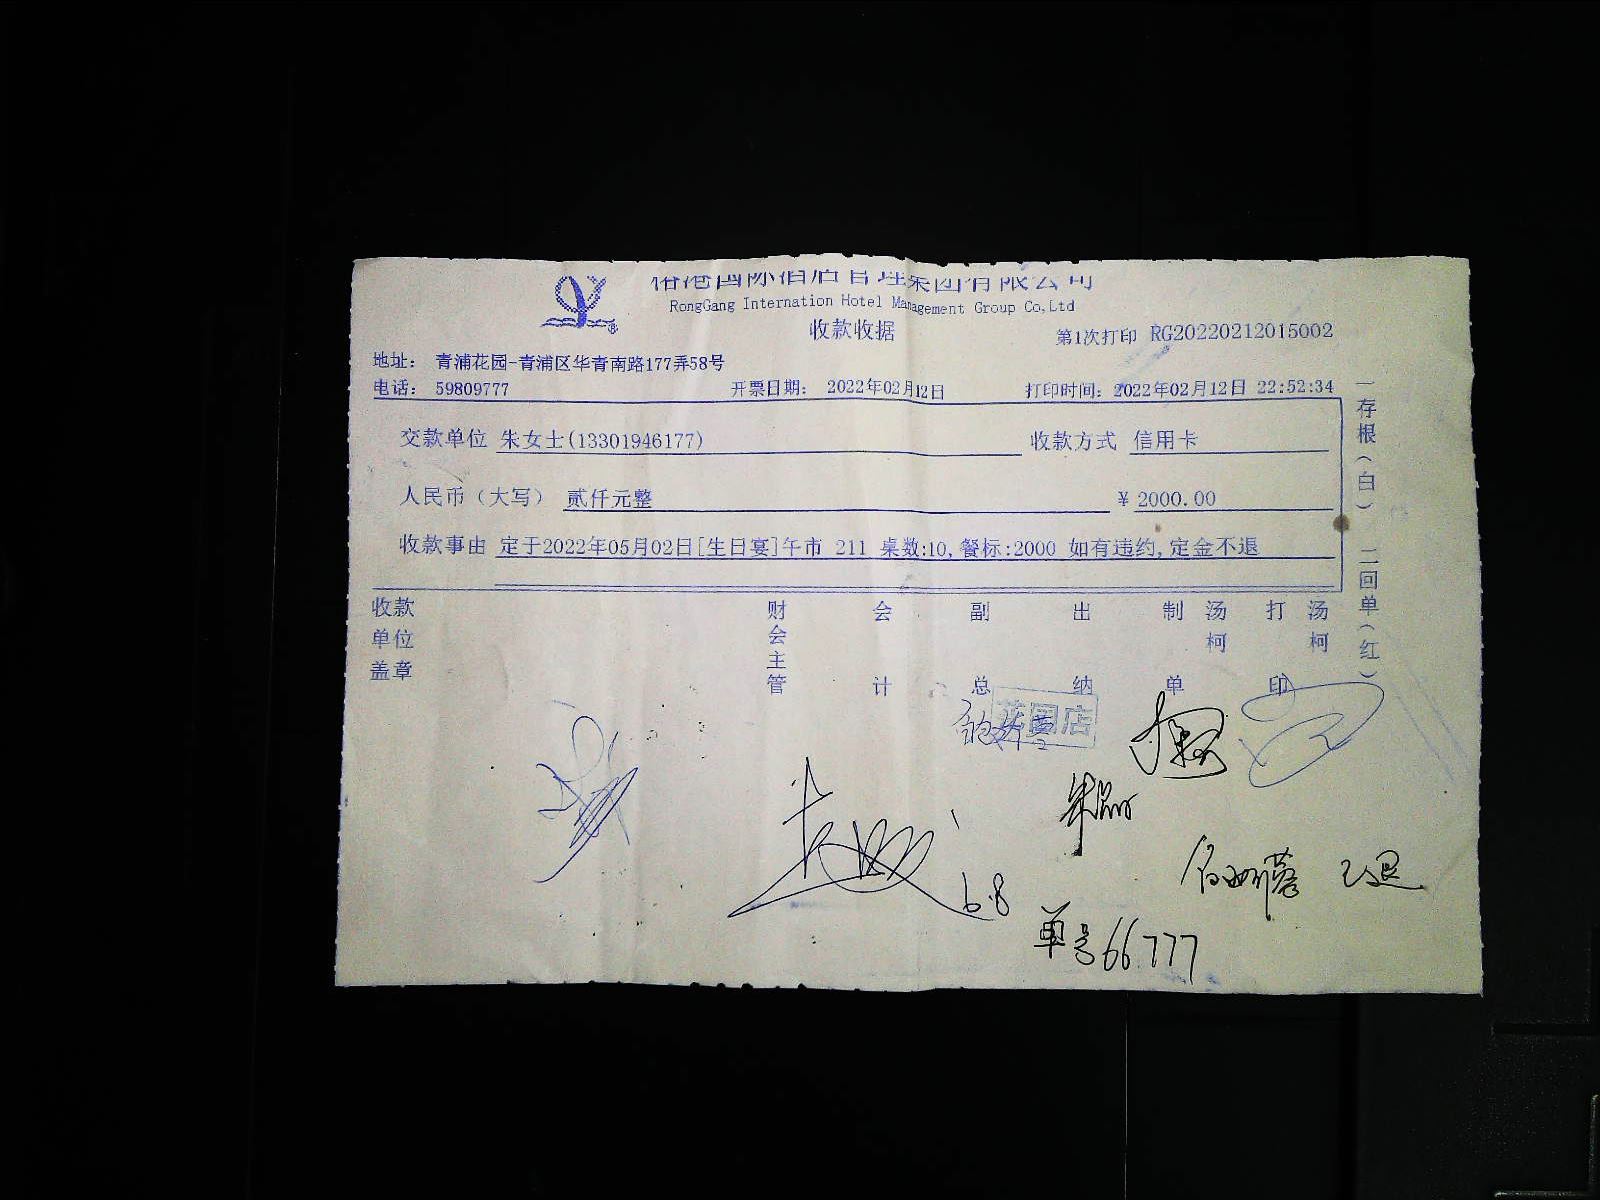 港国际酒店管理集团有限公司
RongGang Internation Hotel Management Group Co,Ltd
收款收据
第1次打印 RG20220212015002
地址： 青浦花园-青浦区华青南路177弄58号
电话： 59809777 开票日期： 2022年02月12日 打印时间： 2022年02月12日 22:52:34
交款单位 朱女士(13301946177) 收款方式 信用卡
人民币（大写） 贰仟元整 ￥ 2000.00
收款事由 定于2022年05月02日[生日宴]午市 211 桌数:10,餐标:2000 如有违约,定金不退
一存根（白） 二回单（红）
收款单位盖章 财会主管 会计 副总 出纳 制单 汤柯 打印 汤柯
花园店
6.8
已退
单号66777